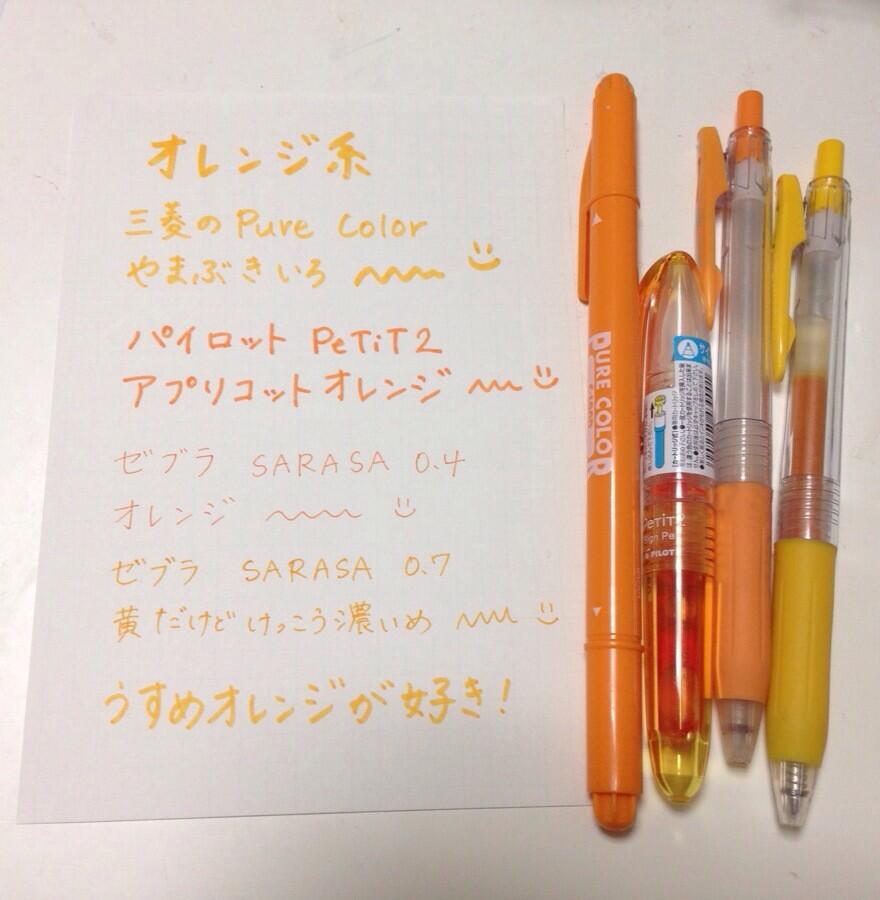 オレンジ系
三菱の Pure Color
やまぶきいろ
パイロット PeTiT2
アプリコットオレンジ
ゼブラ SARASA 0.4
オレンジ
ゼブラ SARASA 0.7
黄だけどけっこう濃いめ
うすめオレンジが好き!
PURE COLOR
PeTiT2
Sign Pe
PILOT
サイ